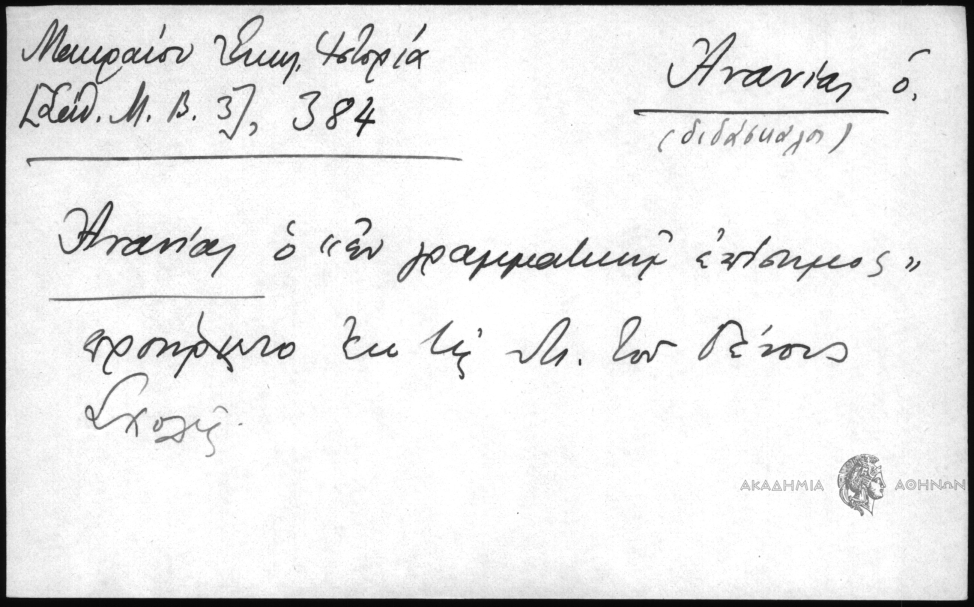 Μακραίου Ἐκκλ. Ἱστορία
[Σάθ. Μ. Β. 3], 384
Ἀνανίας ὁ.
(διδάσκαλος)
Ἀνανίας ὁ «ἐν γραμματικῇ ἐπίσημος»
προήρχετο ἐκ τῆς Μ. τοῦ Γένους
Σχολῆς.
ΑΚΑΔΗΜΙΑ ΑΘΗΝΩΝ